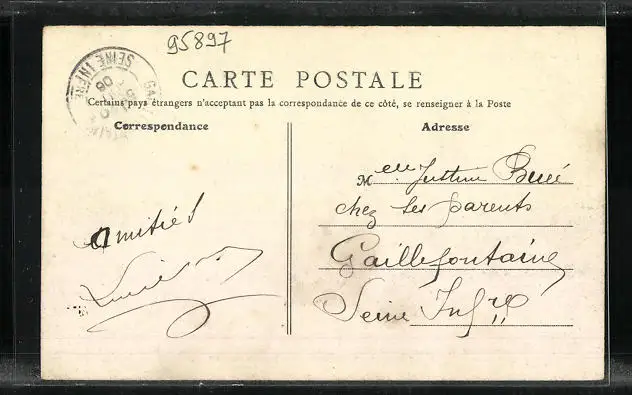 95897
SEINE INFRE
CARTE POSTALE
Certains pays étrangers n'acceptent pas la correspondance de ce côté, se renseigner à la Poste
Correspondance
Adresse
Melle Justine
chez ses parents
Gaillefontaine
Seine Infre
amitiés